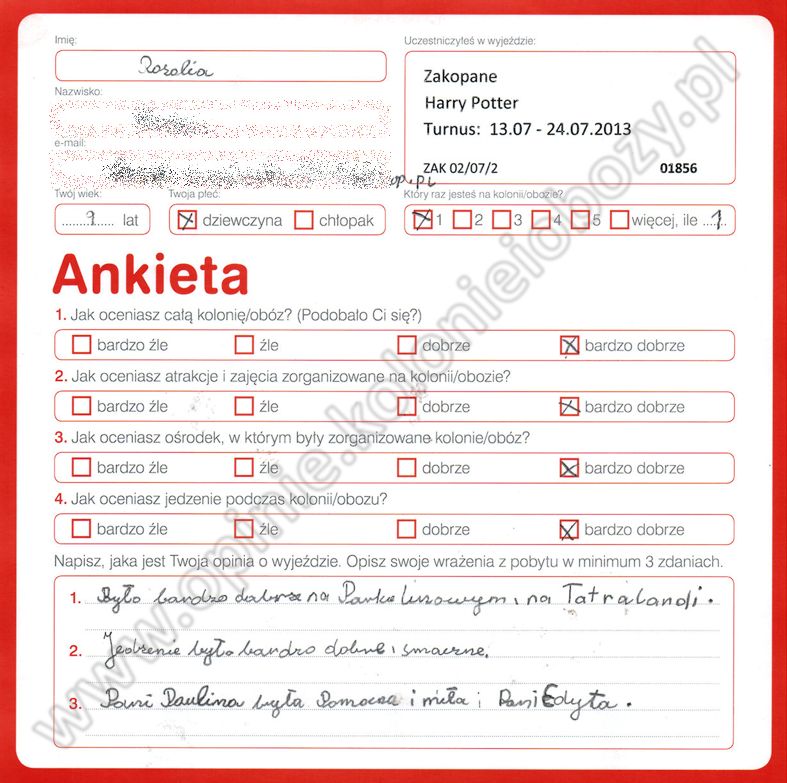 Imię:
Uczestniczyłeś w wyjeździe:
Rozalia
Zakopane
Harry Potter
Turnus: 13.07 - 24.07.2013
ZAK 02/07/2 01856
Nazwisko:
e-mail:
op.pl
Twój wiek:
Twoja płeć:
Który raz jesteś na kolonii/obozie?
9 lat
dziewczyna chłopak
1 2 3 4 5 więcej, ile 1
Ankieta
1. Jak oceniasz całą kolonię/obóz? (Podobało Ci się?)
bardzo źle źle dobrze bardzo dobrze
2. Jak oceniasz atrakcje i zajęcia zorganizowane na kolonii/obozie?
bardzo źle źle dobrze bardzo dobrze
3. Jak oceniasz ośrodek, w którym były zorganizowane kolonie/obóz?
bardzo źle źle dobrze bardzo dobrze
4. Jak oceniasz jedzenie podczas kolonii/obozu?
bardzo źle źle dobrze bardzo dobrze
Napisz, jaka jest Twoja opinia o wyjeździe. Opisz swoje wrażenia z pobytu w minimum 3 zdaniach.
1. Było bardzo dobrze na Parku linowym i na Tatralandi.
2. Jedzenie było bardzo dobre i smaczne.
3. Pani Paulina była Pomocna i miła i Pani Edyta.
www.opinie.kolonieiobozy.pl